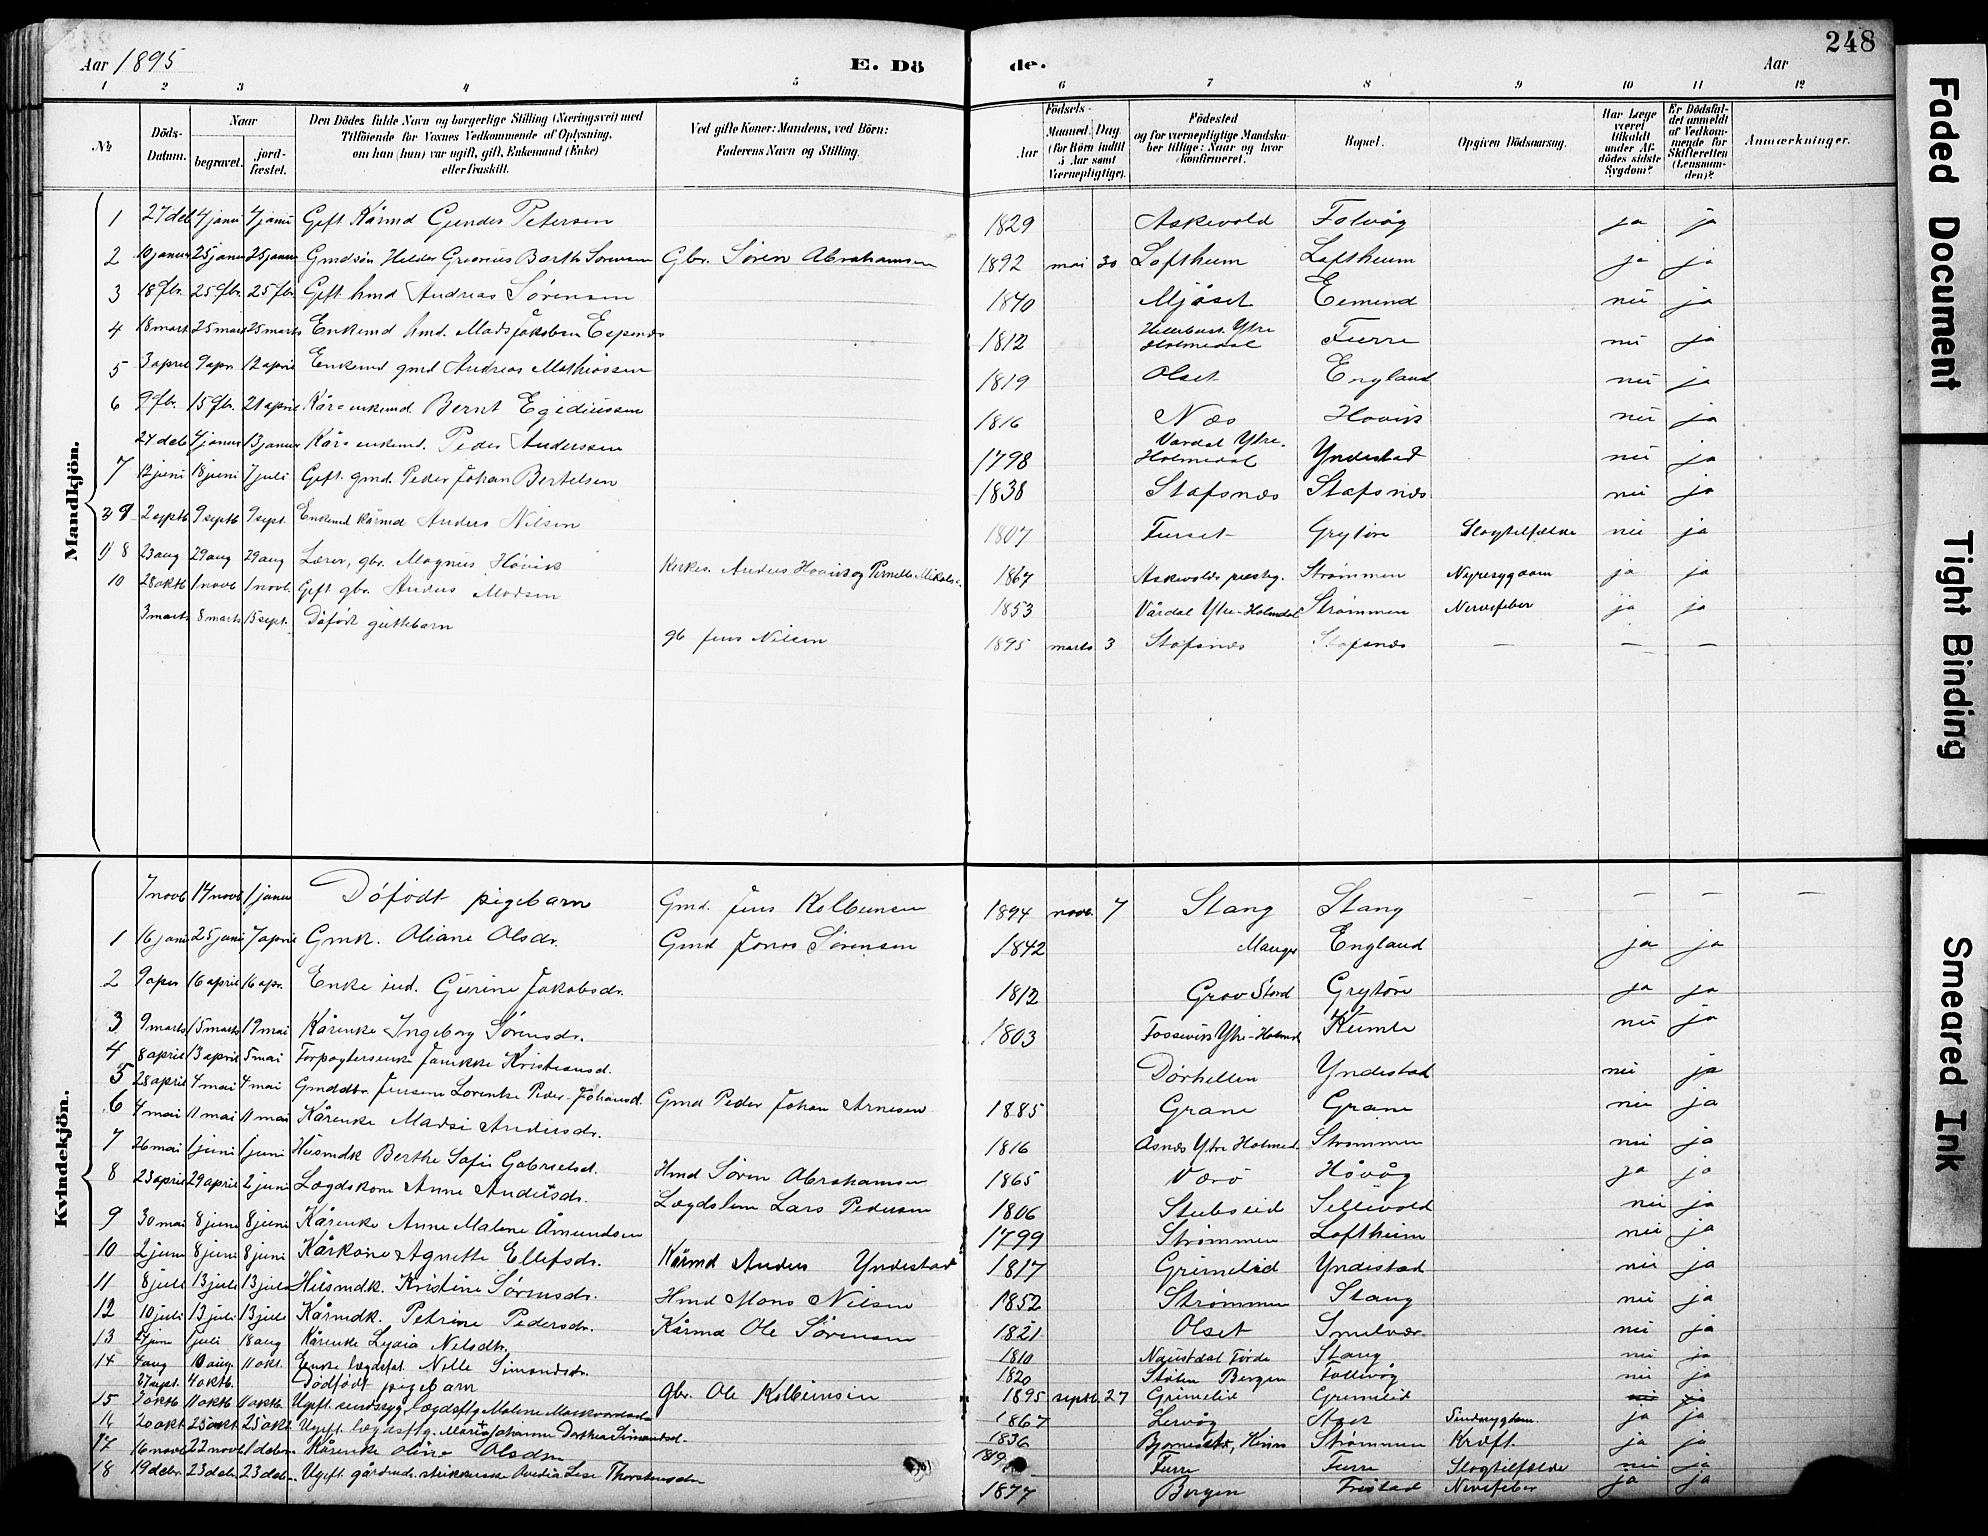 Aar 1895 E. Dö de. Aar 248
1 2 3 4 5 6 7 8 9 10 11 12
No
Döds-Datum.
Naar
begravet.
jord-fæstet.
Den Dödes fulde Navn og borgerlige Stilling (Næringsvei) med Tilföiende for Voxnes Vedkommende af Oplysning, om han (hun) var ugift, gift, Enkemand (Enke) eller fraskilt.
Ved gifte Koner: Mandens, ved Börn: Faderens Navn og Stilling.
Födsels-
Aar
Maaned. Dag
(for Börn indtil 5 Aar samt Værnepligtige).
Födested og for værnepligtige Mandskaber tillige: Naar og hvor konfirmeret.
Bopæl.
Opgiven Dödsaarsag.
Har Læge været tilkaldt under Afdödes sidste Sygdom?
Er Dödsfaldet anmeldt af Vedkommende for Skifteretten (Lensmanden)?
Anmærkninger.
Mandkjön.
1 27 deb 4 janu 7 janu Gift Kårmd Gjender Petersen 1829 Askevold Folvåg ja ja
2 10 janu 25 janu 25 janu Gmdsön Helder Greorius Barth Sörensen Gbr. Sören Abrahamsen 1892 mai 30 Loftheim Loftheim ja ja
3 18 fbr. 25 fbr. 25 fbr. Gift hmd Andreas Sörensen 1840 Mjåset Eemend nei ja
4 18 mart 25 mart 25 marts Enkemd hmd. Mads Jakobsen Espenæs 1812 Ytre Holmedal Furre nei ja
5 3 april 9 apr 12 april Enkemd gmd Andreas Mathiassen 1819 Olset England nei ja
6 9 fbr. 15 fbr. 21 april Kårenkemd Bernt Egidiussen 1816 Næs Hovik nei ja
27 deb 4 janu 13 janu Kårenkemd. Peder Anderssen 1798 Vardal Ytre-Holmedal Yndestad nei ja
7 12 juni 18 juni 7 juli Gift. gmd. Peder Johan Bertelsen 1838 Stafsnæs Stafsnæs nei ja
9 2 septb 9 septb 9 sept. Enkemd kårmd Anders Nilsen 1807 Furset Grytöre Slagtilfælde nei ja
8 23 aug 29 aug 29 aug Lærer, gbr. Magnus Hövik Kirkes. Anders Hovik og Pernelle Mikals. 1867 Askevolds præsteg. Strömmen Nyresygdom ja ja
10 28 oktb 1 novb 1 novb. Gift gbr. Anders Madsen 1853 Vårdal Ytre-Holmedal Strömmen Nervefeber ja ja
3 marts 8 marts 15 sept. Döfödt guttebarn gb Jens Nilsen 1895 marts 3 Stafsnæs Stafsnæs — — —
Kvindekjön.
7 novb 14 novb 1 janu Döfödt pigebarn Gmd. Jens Kolbeinsen 1894 novb. 7 Stang Stang — — —
1 16 janu 25 janu 7 april Gmk. Oliane Olsdr. Gmd Jonas Sörensen 1842 Manger England ja ja
2 9 aper 16 april 16 apr. Enke ind. Gurine Jakobsdr. 1812 Grov Stord Grytöre ja ja
3 9 marts 15 marts 19 mai Kårenke Ingeborg Sörensdr. 1803 Fossevik Ytre-Holmed Kumle nei ja
4 8 april 13 april 5 mai Forpagterenke Janikke Kristiansd. Dörhellen Yndestad nei ja
5 28 april 4 mai 4 mai Gmddtr. Jensene Lorentse Peder-Johansd. Gmd Peder Johan Arnesen 1885 Grane Grane nei ja
6 4 mai 11 mai 11 mai Kårenke Madsi Andersdr. 1816 Åsnæs Ytre Holmed. Strömmen nei ja
7 26 mai 1 juni 1 juni Husmdk Berthe Sofie Gabrielsd. Hmd Sören Abrahamsen 1865 Værö Håvåg ja ja
8 23 april 29 april 2 juni Lægdskone Anne Andersdr. Lægdslem Lars Pedersen 1806 Stubseid Sellevold nei ja
9 30 mai 8 juni 8 juni Kårenke Anne Malene Åmundsen 1799 Strömmen Loftheim nei ja
10 2 juni 8 juni 8 juni Kårkone Agnette Ellefsdr. Kårmd Anders Yndestad 1817 Grimelid Yndestad nei ja
11 8 juli 13 juli 13 juli Husmdk. Kristine Sörensdr. Hmd Mons Nilsen 1852 Strömmen Stang nei ja
12 10 juli 13 juli 13 juli Kårmdk. Petrine Pedersdr. Kårmd Ole Sörensen 1821 Olset Smelvær nei ja
13 27 juni 1 juli 18 aug Kårenke Lydia Nilsdtr. 1810 Naustdal Förde Stang nei ja
14 4 aug 10 aug. 11 okt. Enke lægdsfat. Nille Simonsdr. 1820 Stölen Bergen Follevåg nei ja
27 sept. 4 oktb. Dödfödt pigebarn Gbr. Ole Kolbeinsen 1895 septb 27 Grimelid Grimelid
15 3 oktb 11 oktb 11 oktb. Ugift. sindssyg, lægdsflg Malene 1867 Lervåg Sindssygdom. ja ja
16 20 okt 25 okt 25 okt Ugift lægdsflg. Maria Johanne Dorthea Simonsd. 1836 Strömmen Kræft. ja ja
17 16 novb 22 novb 1 debr. Kårenke Oline Olsdtr 1819 Furre Furre Slagtilfælde nei ja
18 19 debr. 23 deb. 23 deb. Ugift gårdmds. Lise Thorsteinsdtr 1877 Bergen Fristad Nervefeber ja ja
Faded Document
Tight Binding
Smeared Ink